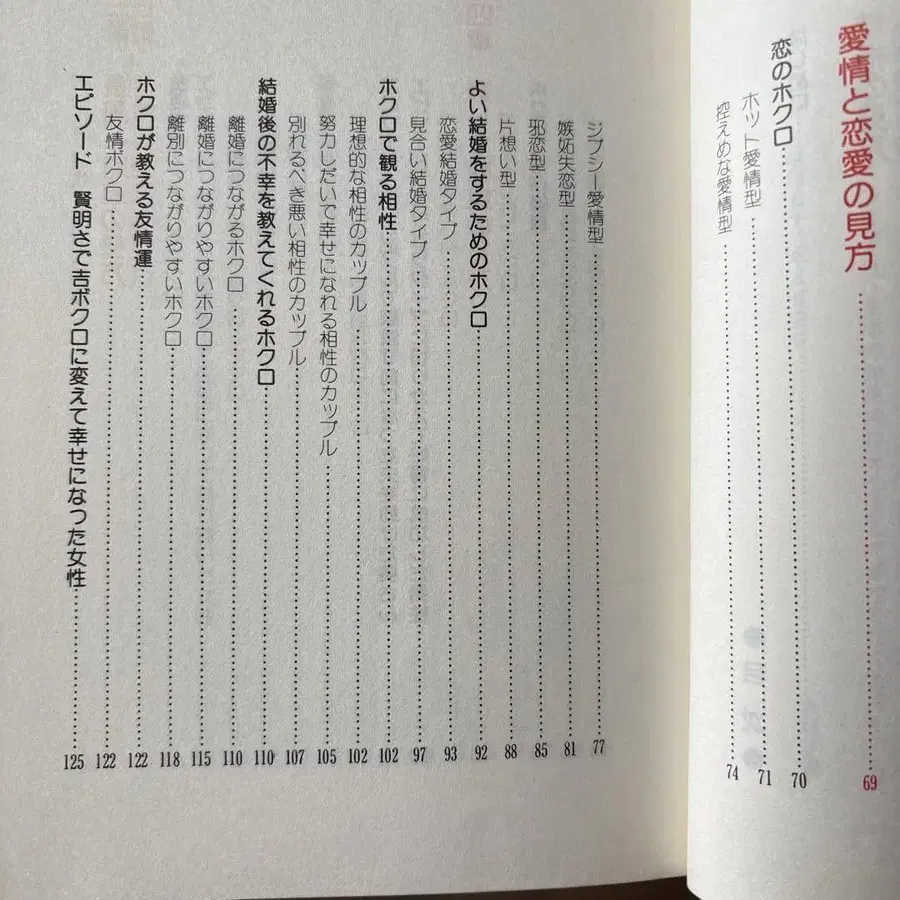 愛情と恋愛の見方……69
恋のホクロ……70
ホット愛情型……71
控えめな愛情型……74
ジプシー愛情型……77
嫉妬失恋型……81
邪恋型……85
片想い型……88
よい結婚をするためのホクロ……92
恋愛結婚タイプ……93
見合い結婚タイプ……97
ホクロで観る相性……102
理想的な相性のカップル……102
努力しだいで幸せになれる相性のカップル……105
別れるべき悪い相性のカップル……107
結婚後の不幸を教えてくれるホクロ……110
離婚につながるホクロ……110
離婚につながりやすいホクロ……115
離別につながりやすいホクロ……118
ホクロが教える友情運……122
友情ボクロ……122
エピソード 賢明さで吉ボクロに変えて幸せになった女性……125